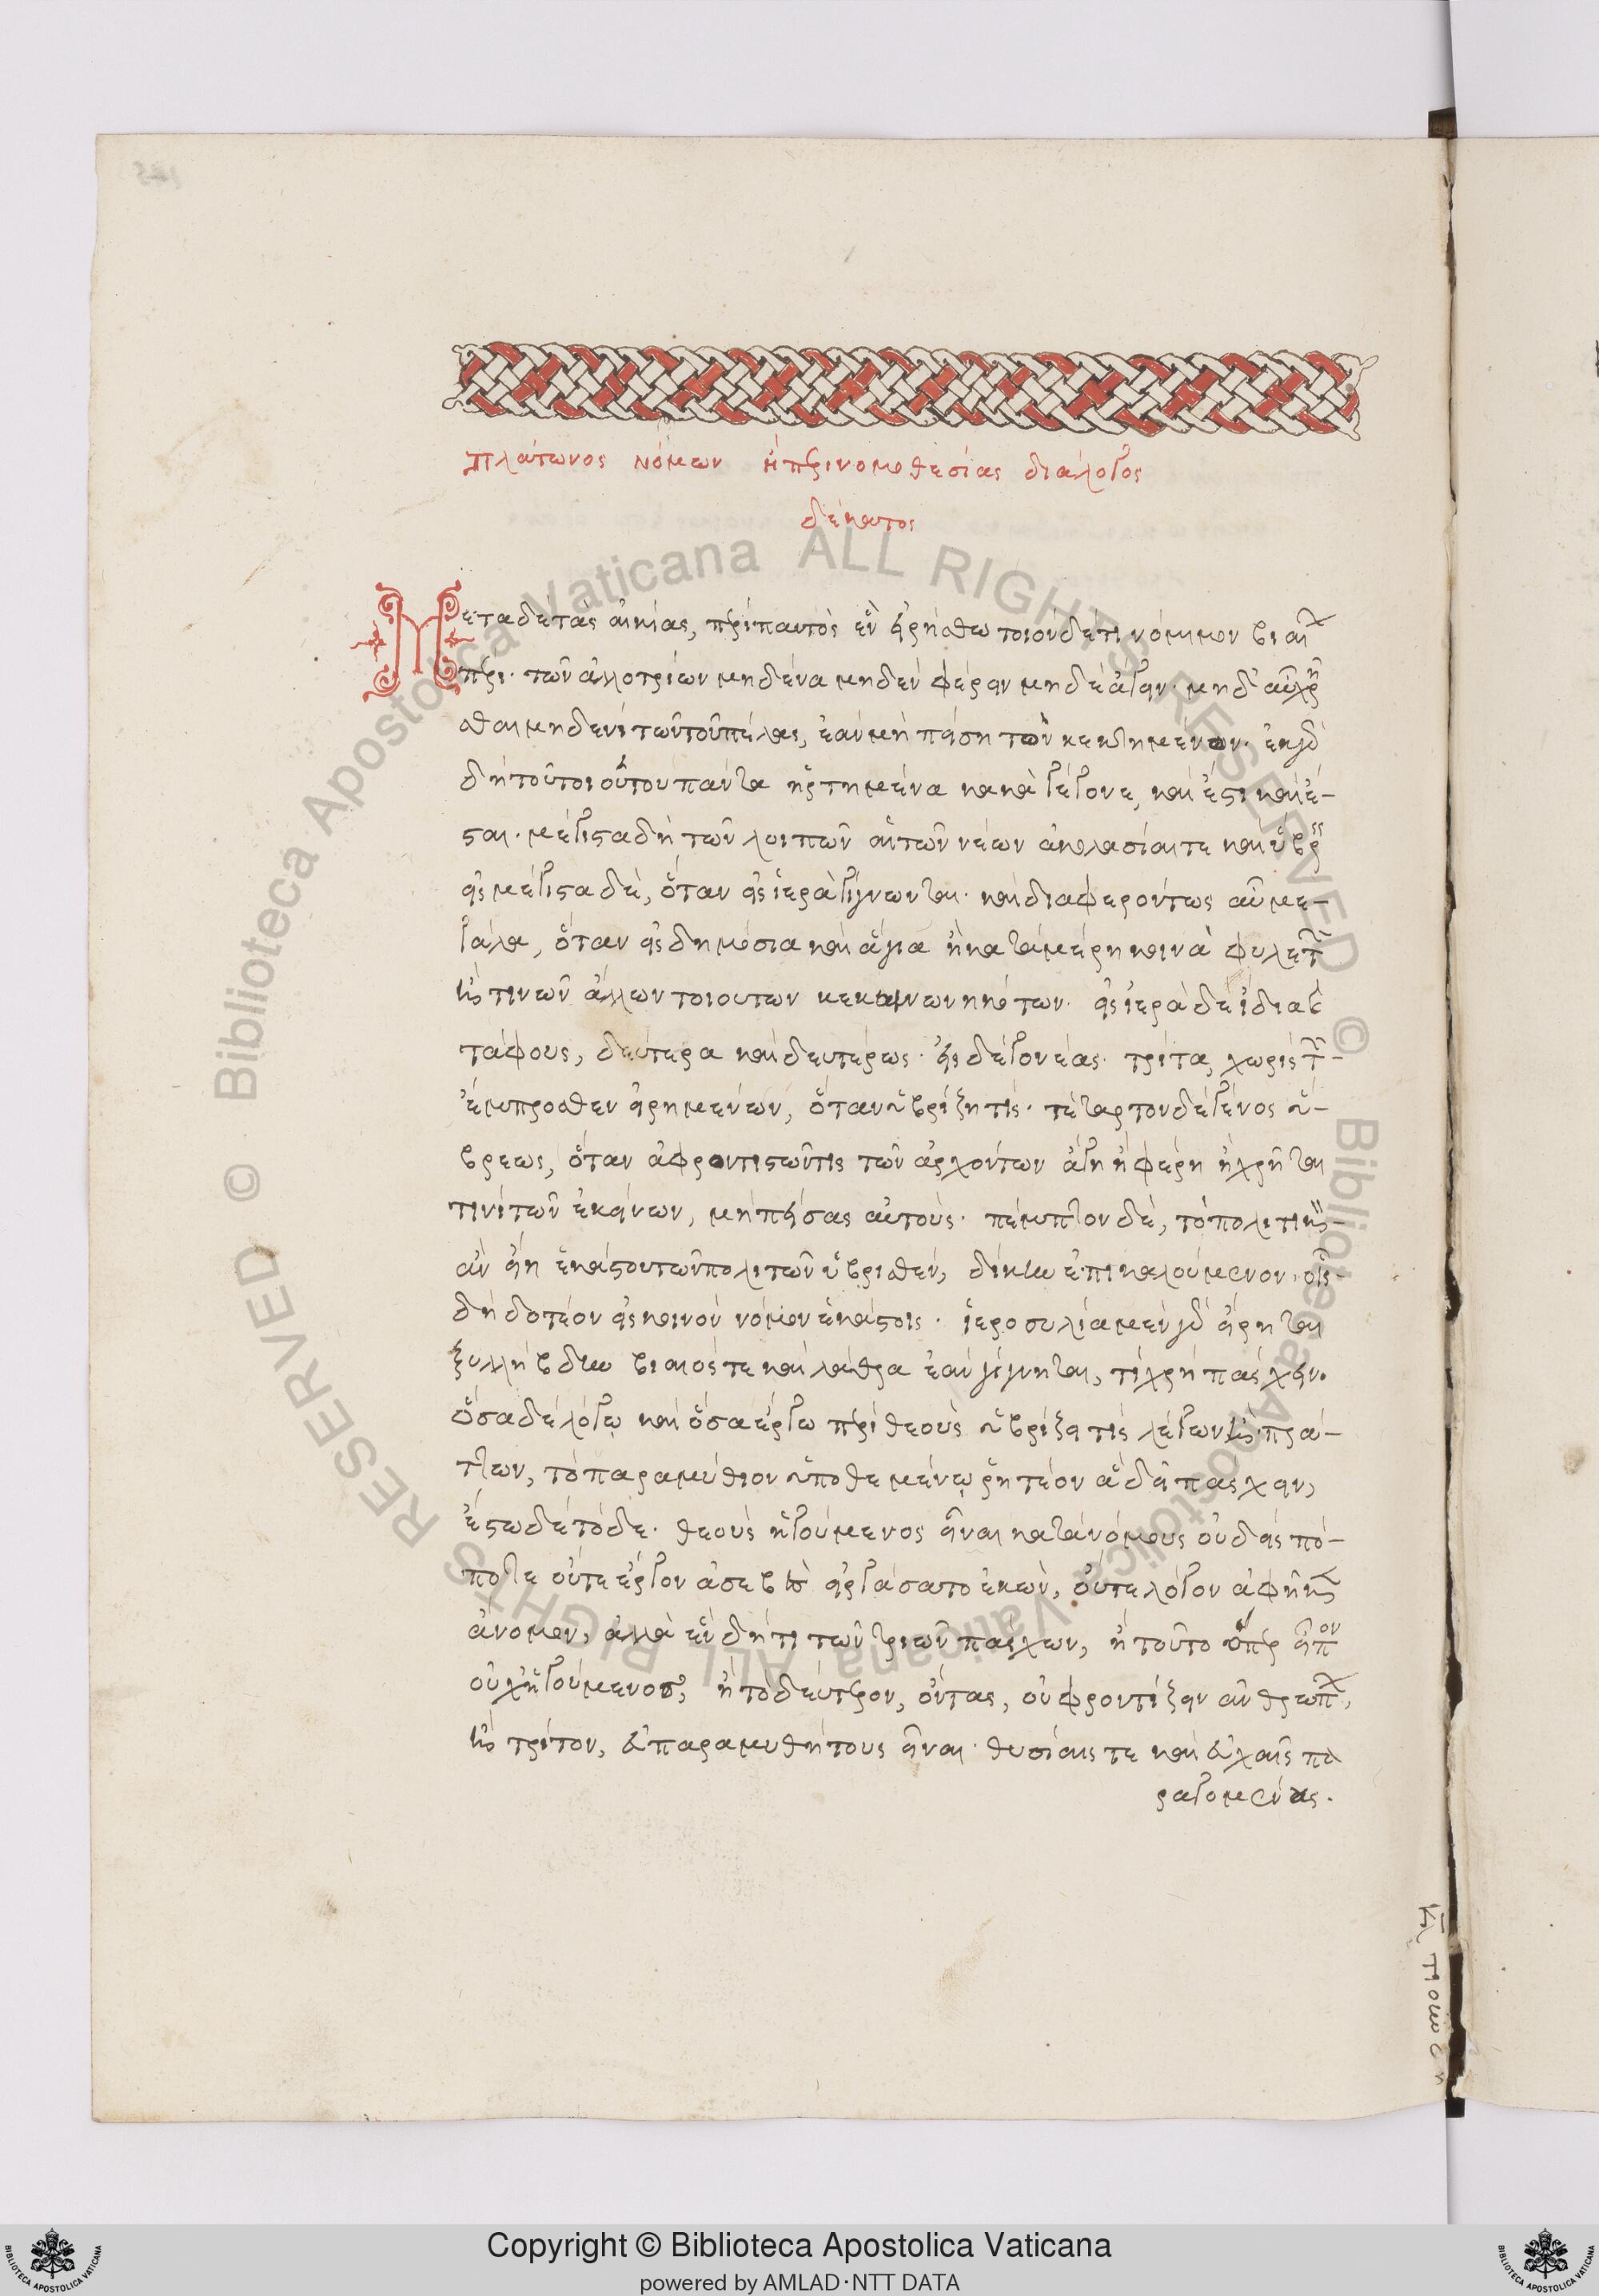 Πλάτωνος νόμων ἢ περὶ νομοθεσίας διάλογος
δέκατος
Μετὰ δὲ τὰς αἰκίας, περὶ παντὸς ἓν εἰρήσθω τοιόνδέ τι νόμιμον βιαί
πέρι· τῶν ἀλλοτρίων μηδένα μηδὲν φέρειν μηδὲ ἄγειν· μηδ' αὖ χρῆ
σθαι μηδενὶ τῶν τοῦ πέλας, ἐὰν μὴ πείσῃ τὸν κεκτημένον. ἐκ γὰρ
δὴ τοῦ τοιούτου πάντα ἠρτημένα κακὰ γέγονε, καὶ ἔστι καὶ ἔ-
σται. μέγιστα δὴ τῶν λοιπῶν αἱ τῶν νέων ἀκολασίαι τε καὶ ὕβρεις
εἰς μέγιστα δέ, ὅταν εἰς ἱερὰ γίγνωνται· καὶ διαφερόντως αὖ με-
γάλα, ὅταν εἰς δημόσια καὶ ἅγια ἢ κατὰ μέρη κοινὰ φυλετῶν
ἤ τινων ἄλλων τοιούτων κεκοινωνηκότων. εἰς ἱερὰ δὲ ἴδια καὶ
τάφους, δεύτερα καὶ δευτέρως· εἰς δὲ γονέας. τρίτα, χωρὶς τῶν-
ἔμπροσθεν εἰρημένων, ὅταν ὑβρίζῃ τις. τέταρτον δὲ γένος ὕ-
βρεως, ὅταν ἀφροντιστῶν τις τῶν ἀρχόντων ἄγῃ ἢ φέρῃ ἢ χρῆται
τινὶ τῶν ἐκείνων, μὴ πείσας αὐτούς. πέμπτον δέ, τὸ πολιτικὸν-
ἂν εἴη ἑκάστου τῶν πολιτῶν ὑβρισθέν, δίκην ἐπικαλούμενον· οἷς
δὴ δοτέον εἰς κοινὸν νόμον ἑκάστοις. ἱεροσυλία μὲν γὰρ εἴρηται
ξυλλήβδην βίαιός τε καὶ λάθρα ἐὰν γίγνηται, τί χρὴ πάσχειν.
ὅσα δὲ λόγῳ καὶ ὅσα ἔργῳ περὶ θεοὺς ὑβρίζει τις λέγων ἢ πρά-
ττων, τὸ παραμύθιον ὑποθεμένῳ ῥητέον ἃ δεῖ πάσχειν,
ἔστω δὲ τόδε. θεοὺς ἡγούμενος εἶναι κατὰ νόμους οὐδεὶς πώ-
ποτε οὔτε ἔργον ἀσεβὲς εἰργάσατο ἑκών, οὔτε λόγον ἀφῆκεν
ἄνομον, ἀλλὰ ἓν δή τι τῶν τριῶν πάσχων, ἢ τοῦτο ὅπερ εἶπον
οὐχ ἡγούμενος, ἢ τὸ δεύτερον, ὄντας, οὐ φροντίζειν ἀνθρώπων,
ἢ τρίτον, εὐπαραμυθήτους εἶναι· θυσίαις τε καὶ εὐχαῖς πα
ραγομένους.
Copyright © Biblioteca Apostolica Vaticana
powered by AMLAD·NTT DATA